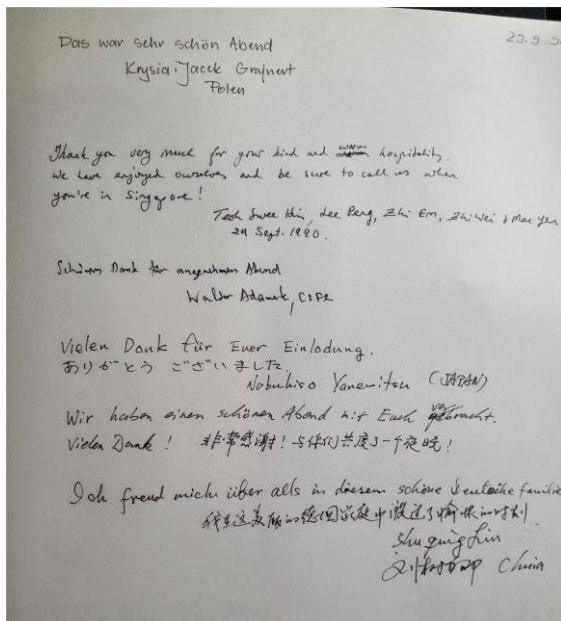 29.9.90
Das war sehr schön Abend
Krysia i Jacek Grajnert
Polen
Thank you very much for your kind and warm hospitality.
We have enjoyed ourselves and be sure to call us when
you're in Singapore!
Swee Lee Peng, Zhi Em, Zhi Wei & Mae Yen
29 Sept. 1990.
Schönen Dank für angenehmen Abend
Adamek,
Vielen Dank für Euer Einlodung.
ありがとう ございました.
Nobuhiso Yanemitsu (JAPAN)
Wir haben einen schönen Abend mit Euch verbracht.
Vielen Dank! 非常感谢!与你们共度了一个夜晚!
Ich freud mich über alls in diesem schöne deutsche familie
我在这美丽的德国家庭中渡过了愉快的时刻
Shuqing Liu
刘 China